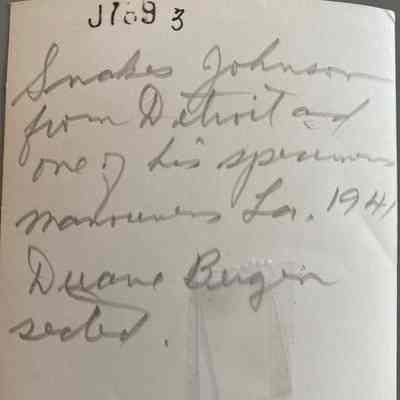 J1693
Snakes Johnson
from Detroit and
one of his specimens
manouvers La. 1941
Duane Bergin
seated.